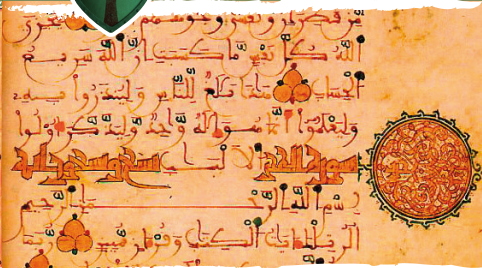 الله كل نفس ما كسبت ان الله سريع
الحساب هذا بلغ للناس ولينذروا به
وليعلموا انما هو اله وحد وليذكر اولوا
سورة الحجر الالبب تسع وتسعون اية
بسم الله الرحمن الرحيم
الر تلك ايت الكتب وقران مبين ربما